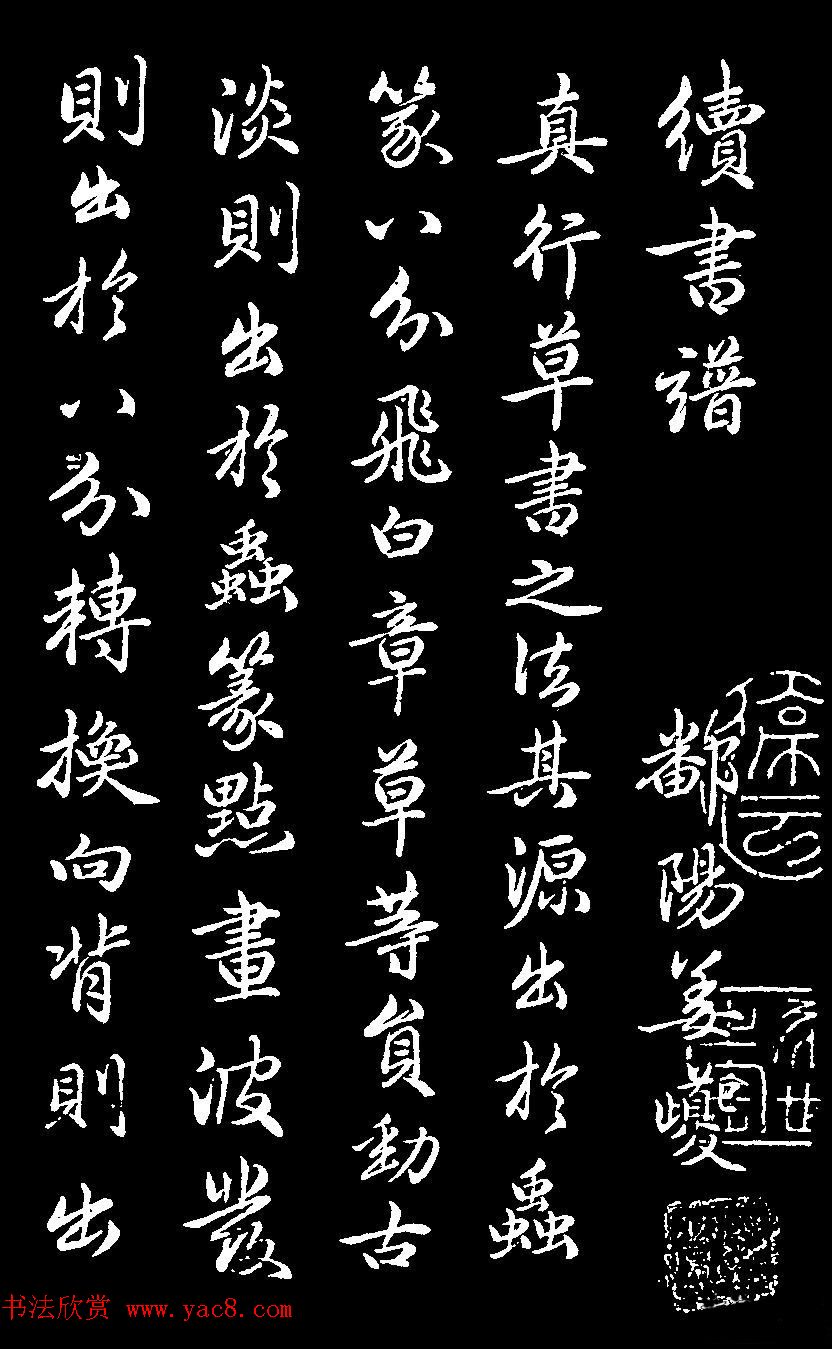 續書譜 鄱陽姜夔
真行草書之法其源出於蟲
篆八分飛白章草等員勁古
淡則出於蟲篆點畫波發
則出於八分轉換向背則出
书法欣赏 www.yac8.com